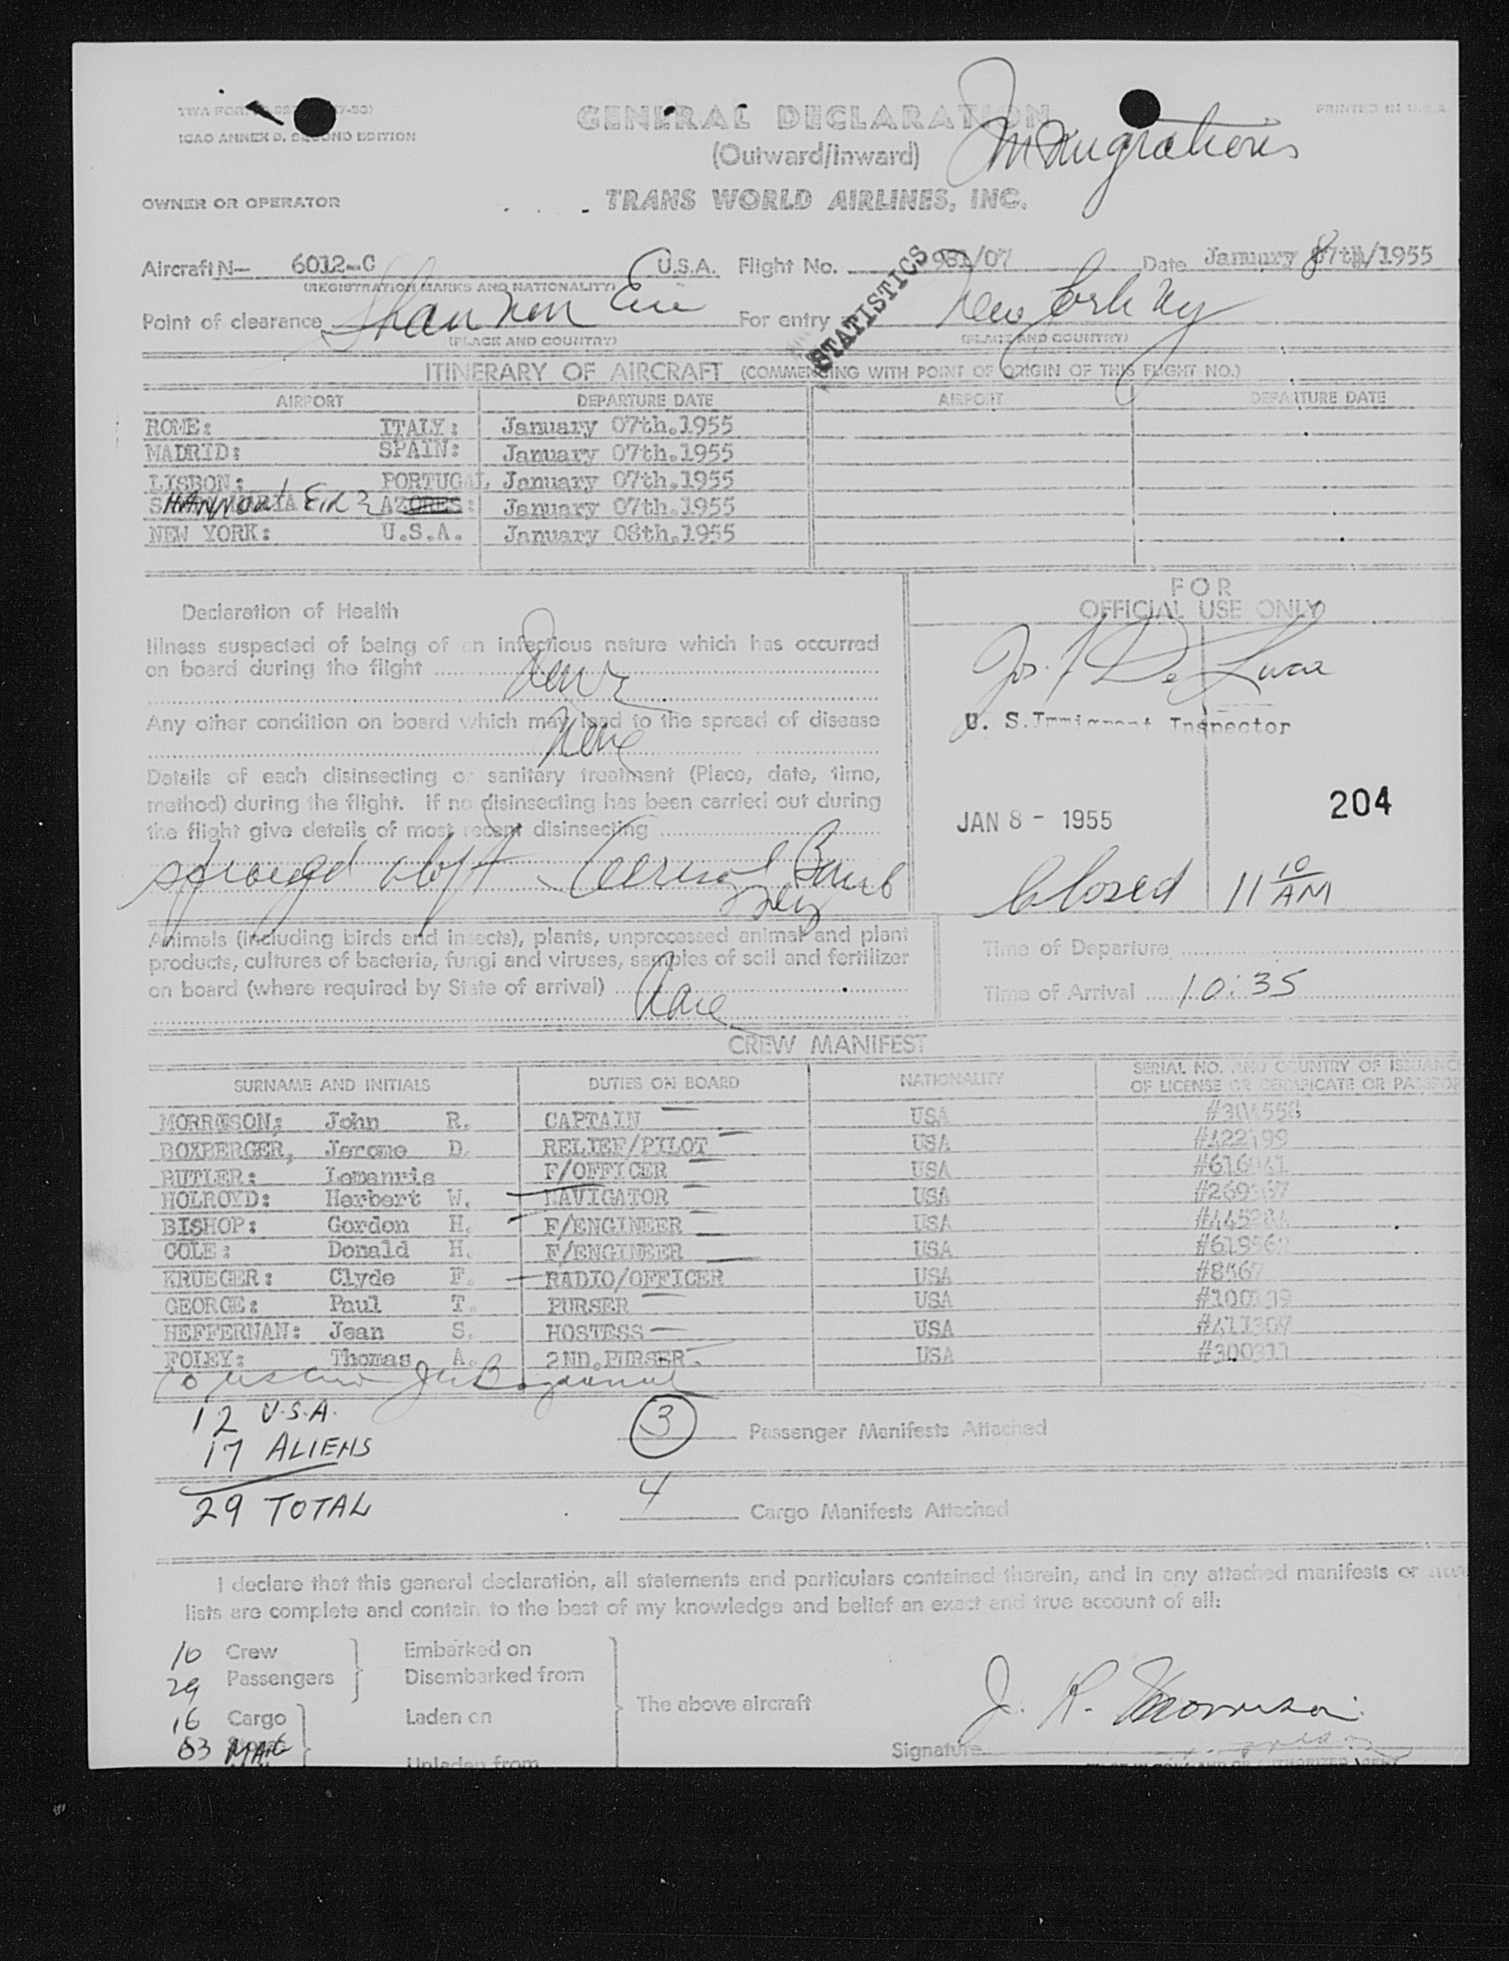 ICAO ANNEX 9, SECOND EDITION
PRINTED IN U.S.A.
GENERAL DECLARATION
(Outward/Inward)
Immigrations
OWNER OR OPERATOR
TRANS WORLD AIRLINES, INC.
Aircraft N- 6012-C U.S.A. Flight No. 981/07 Date January 8 07th/1955
(REGISTRATION MARKS AND NATIONALITY)
STATISTICS
Point of clearance Shannon Eire For entry New York NY
(PLACE AND COUNTRY) (PLACE AND COUNTRY)
ITINERARY OF AIRCRAFT (COMMENCING WITH POINT OF ORIGIN OF THIS FLIGHT NO.)
AIRPORT DEPARTURE DATE AIRPORT DEPARTURE DATE
ROME: ITALY: January 07th.1955
MADRID: SPAIN: January 07th.1955
LISBON: PORTUGAL January 07th.1955
SHANNON EIRE AZORES: January 07th.1955
NEW YORK: U.S.A. January 08th.1955
FOR
OFFICIAL USE ONLY
Declaration of Health
Illness suspected of being of an infectious nature which has occurred
on board during the flight None
Jos. De Luca
U. S. Immigrant Inspector
Any other condition on board which may lead to the spread of disease
None
Details of each disinsecting or sanitary treatment (Place, date, time,
method) during the flight. If no disinsecting has been carried out during
the flight give details of most recent disinsecting
JAN 8 - 1955
204
sprayed aloft Aerosol Bomb
Closed 11 10 AM
Animals (including birds and insects), plants, unprocessed animal and plant
products, cultures of bacteria, fungi and viruses, samples of soil and fertilizer
on board (where required by State of arrival) None
Time of Departure
Time of Arrival 10:35
CREW MANIFEST
SURNAME AND INITIALS DUTIES ON BOARD NATIONALITY SERIAL NO. AND COUNTRY OF ISSUANCE
OF LICENSE OR CERTIFICATE OR PASSPORT
MORRISON: John R. CAPTAIN USA
BOXBERGER, Jerome D. RELIEF/PILOT USA #422199
BUTLER: Lomanris F/OFFICER USA
HOLROYD: Herbert W. NAVIGATOR USA
BISHOP: Gordon H. F/ENGINEER USA
COLE: Donald H. F/ENGINEER USA
KRUEGER: Clyde F. RADIO/OFFICER USA
GEORGE: Paul T. PURSER USA
HEFFERNAN: Jean S. HOSTESS USA #411309
FOLEY: Thomas A. 2ND.PURSER USA #300311
12 U.S.A.
17 ALIENS
29 TOTAL
3 Passenger Manifests Attached
4 Cargo Manifests Attached
I declare that this general declaration, all statements and particulars contained therein, and in any attached manifests or
lists are complete and contain to the best of my knowledge and belief an exact and true account of all:
10 Crew Embarked on
29 Passengers Disembarked from
The above aircraft
16 Cargo Laden on
83 MAIL
Unladen from
J. R. Morrison
Signature